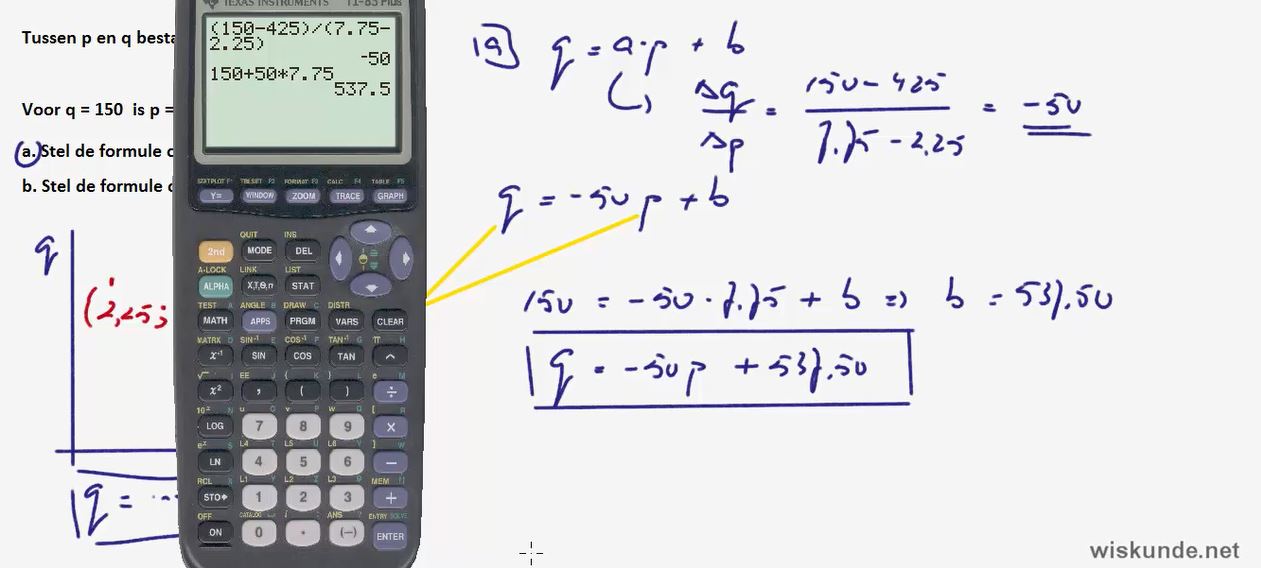 Tussen p en q besta
Voor q = 150 is p =
a. Stel de formule o
b. Stel de formule o
q
(2,25;
q = ...
TEXAS INSTRUMENTS TI-83 Plus
(150-425)/(7.75-
2.25)
-50
150+50*7.75
537.5
STATPLOT F1 TBLSET F2 FORMAT F3 CALC F4 TABLE F5
Y= WINDOW ZOOM TRACE GRAPH
QUIT INS
2nd MODE DEL
A-LOCK LINK LIST
ALPHA X,T,Θ,n STAT
TEST A ANGLE B DRAW C DISTR
MATH APPS PRGM VARS CLEAR
MATRX D SIN⁻¹ E COS⁻¹ F TAN⁻¹ G π H
x⁻¹ SIN COS TAN ^
√ I EE J { K } L e M
x² , ( ) ÷
10ˣ N u O v P w Q [ R
LOG 7 8 9 ×
eˣ S L4 T L5 U L6 V ] W
LN 4 5 6 −
RCL X L1 Y L2 Z L3 θ MEM "
STO 1 2 3 +
OFF CATALOG i : ANS ? ENTRY SOLVE
ON 0 . (−) ENTER
1a q = a·p + b
Δq/Δp = (150 - 425)/(7.75 - 2.25) = -50
q = -50p + b
150 = -50 · 7.75 + b => b = 537.50
q = -50p + 537.50
wiskunde.net